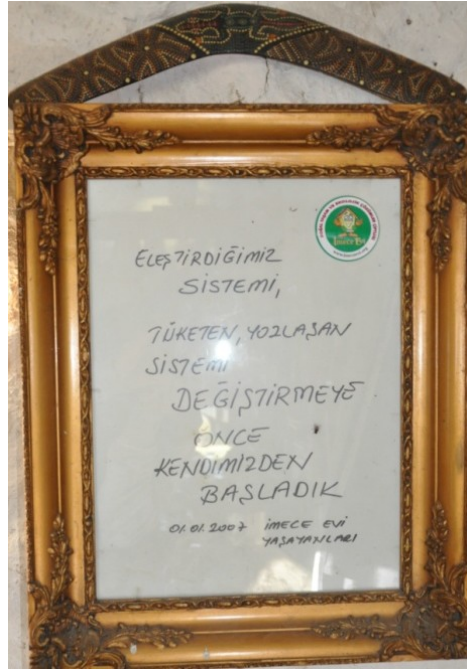 ELEŞTİRDİĞİMİZ
SİSTEMİ,
TÜKETEN, YOZLAŞAN
SİSTEMİ
DEĞİŞTİRMEYE
ÖNCE
KENDİMİZDEN
BAŞLADIK
01.01.2007 İMECE EVİ
YAŞAYANLARI